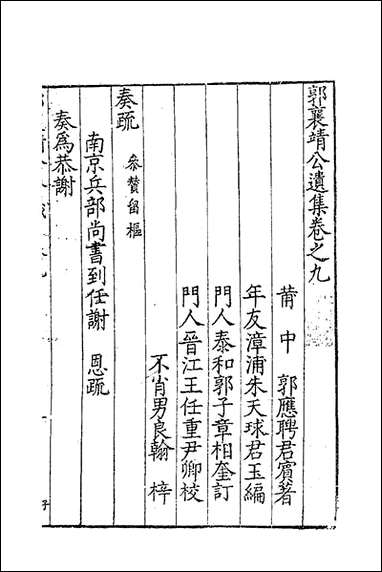 郭襄靖公遺集卷之九
莆中 郭應聘君賓著
年友漳浦朱天球君玉編
門人泰和郭子章相奎訂
門人晉江王任重尹卿校
不肖男良翰 梓
奏疏 叅贊留樞
南京兵部尚書到任謝 恩疏
奏爲恭謝